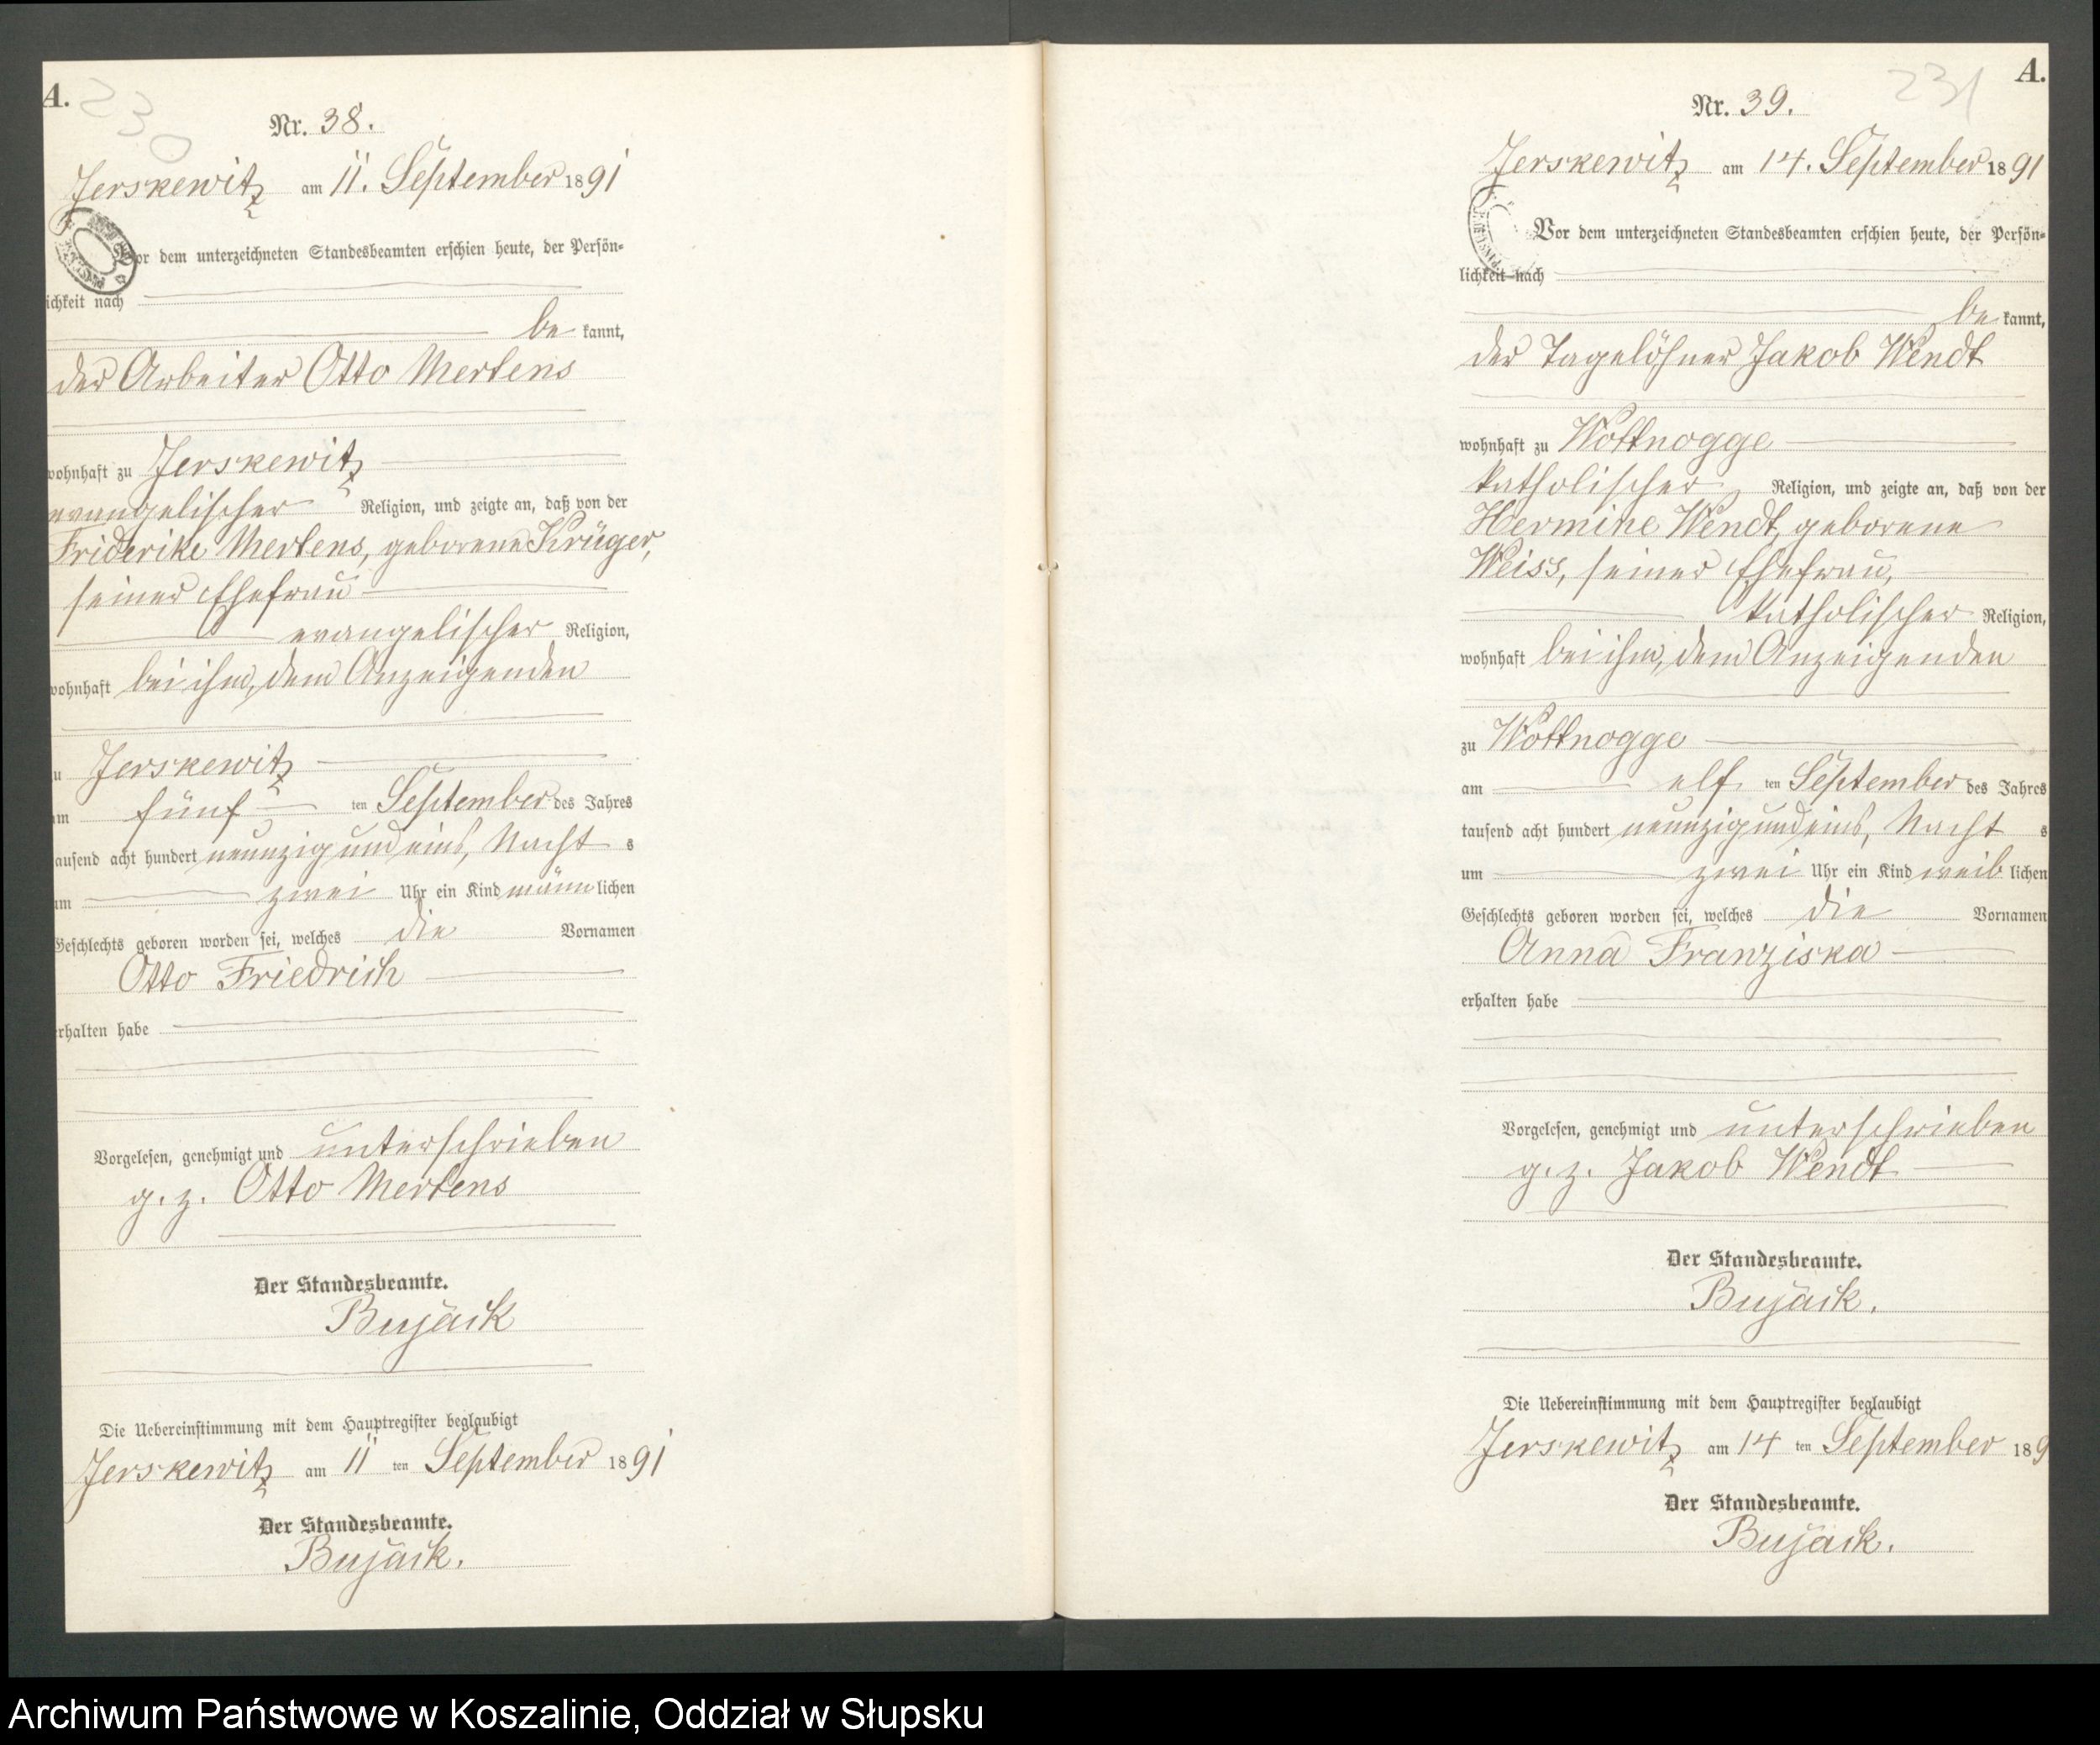 A.
230
Nr. 38.
Jerskewitz am 11. September 1891
Vor dem unterzeichneten Standesbeamten erschien heute, der Persön=
lichkeit nach
be kannt,
der Arbeiter Otto Mertens
wohnhaft zu Jerskewitz
evangelischer Religion, und zeigte an, daß von der
Friderike Mertens, geborene Krüger,
seiner Ehefrau
evangelischer Religion,
wohnhaft bei ihm, dem Anzeigenden
zu Jerskewitz
am fünf ten September des Jahres
tausend acht hundert neunzig und eins, Nacht s
um zwei Uhr ein Kind männ lichen
Geschlechts geboren worden sei, welches die Vornamen
Otto Friedrich
erhalten habe
Vorgelesen, genehmigt und unterschrieben
g. z. Otto Mertens
Der Standesbeamte.
Bujack
Die Uebereinstimmung mit dem Hauptregister beglaubigt
Jerskewitz am 11 ten September 1891
Der Standesbeamte.
Bujack.
231
A.
Nr. 39.
Jerskewitz am 14. September 1891
Vor dem unterzeichneten Standesbeamten erschien heute, der Persön=
lichkeit nach
be kannt,
der Tagelöhner Jakob Wendt
wohnhaft zu Wottnogge
katholischer Religion, und zeigte an, daß von der
Hermine Wendt, geborene
Weiss, seiner Ehefrau,
katholischer Religion,
wohnhaft bei ihm, dem Anzeigenden
zu Wottnogge
am elf ten September des Jahres
tausend acht hundert neunzig und eins, Nacht s
um zwei Uhr ein Kind weib lichen
Geschlechts geboren worden sei, welches die Vornamen
Anna Franziska
erhalten habe
Vorgelesen, genehmigt und unterschrieben
g. z. Jakob Wendt
Der Standesbeamte.
Bujack.
Die Uebereinstimmung mit dem Hauptregister beglaubigt
Jerskewitz am 14 ten September 189
Der Standesbeamte.
Bujack.
Archiwum Państwowe w Koszalinie, Oddział w Słupsku